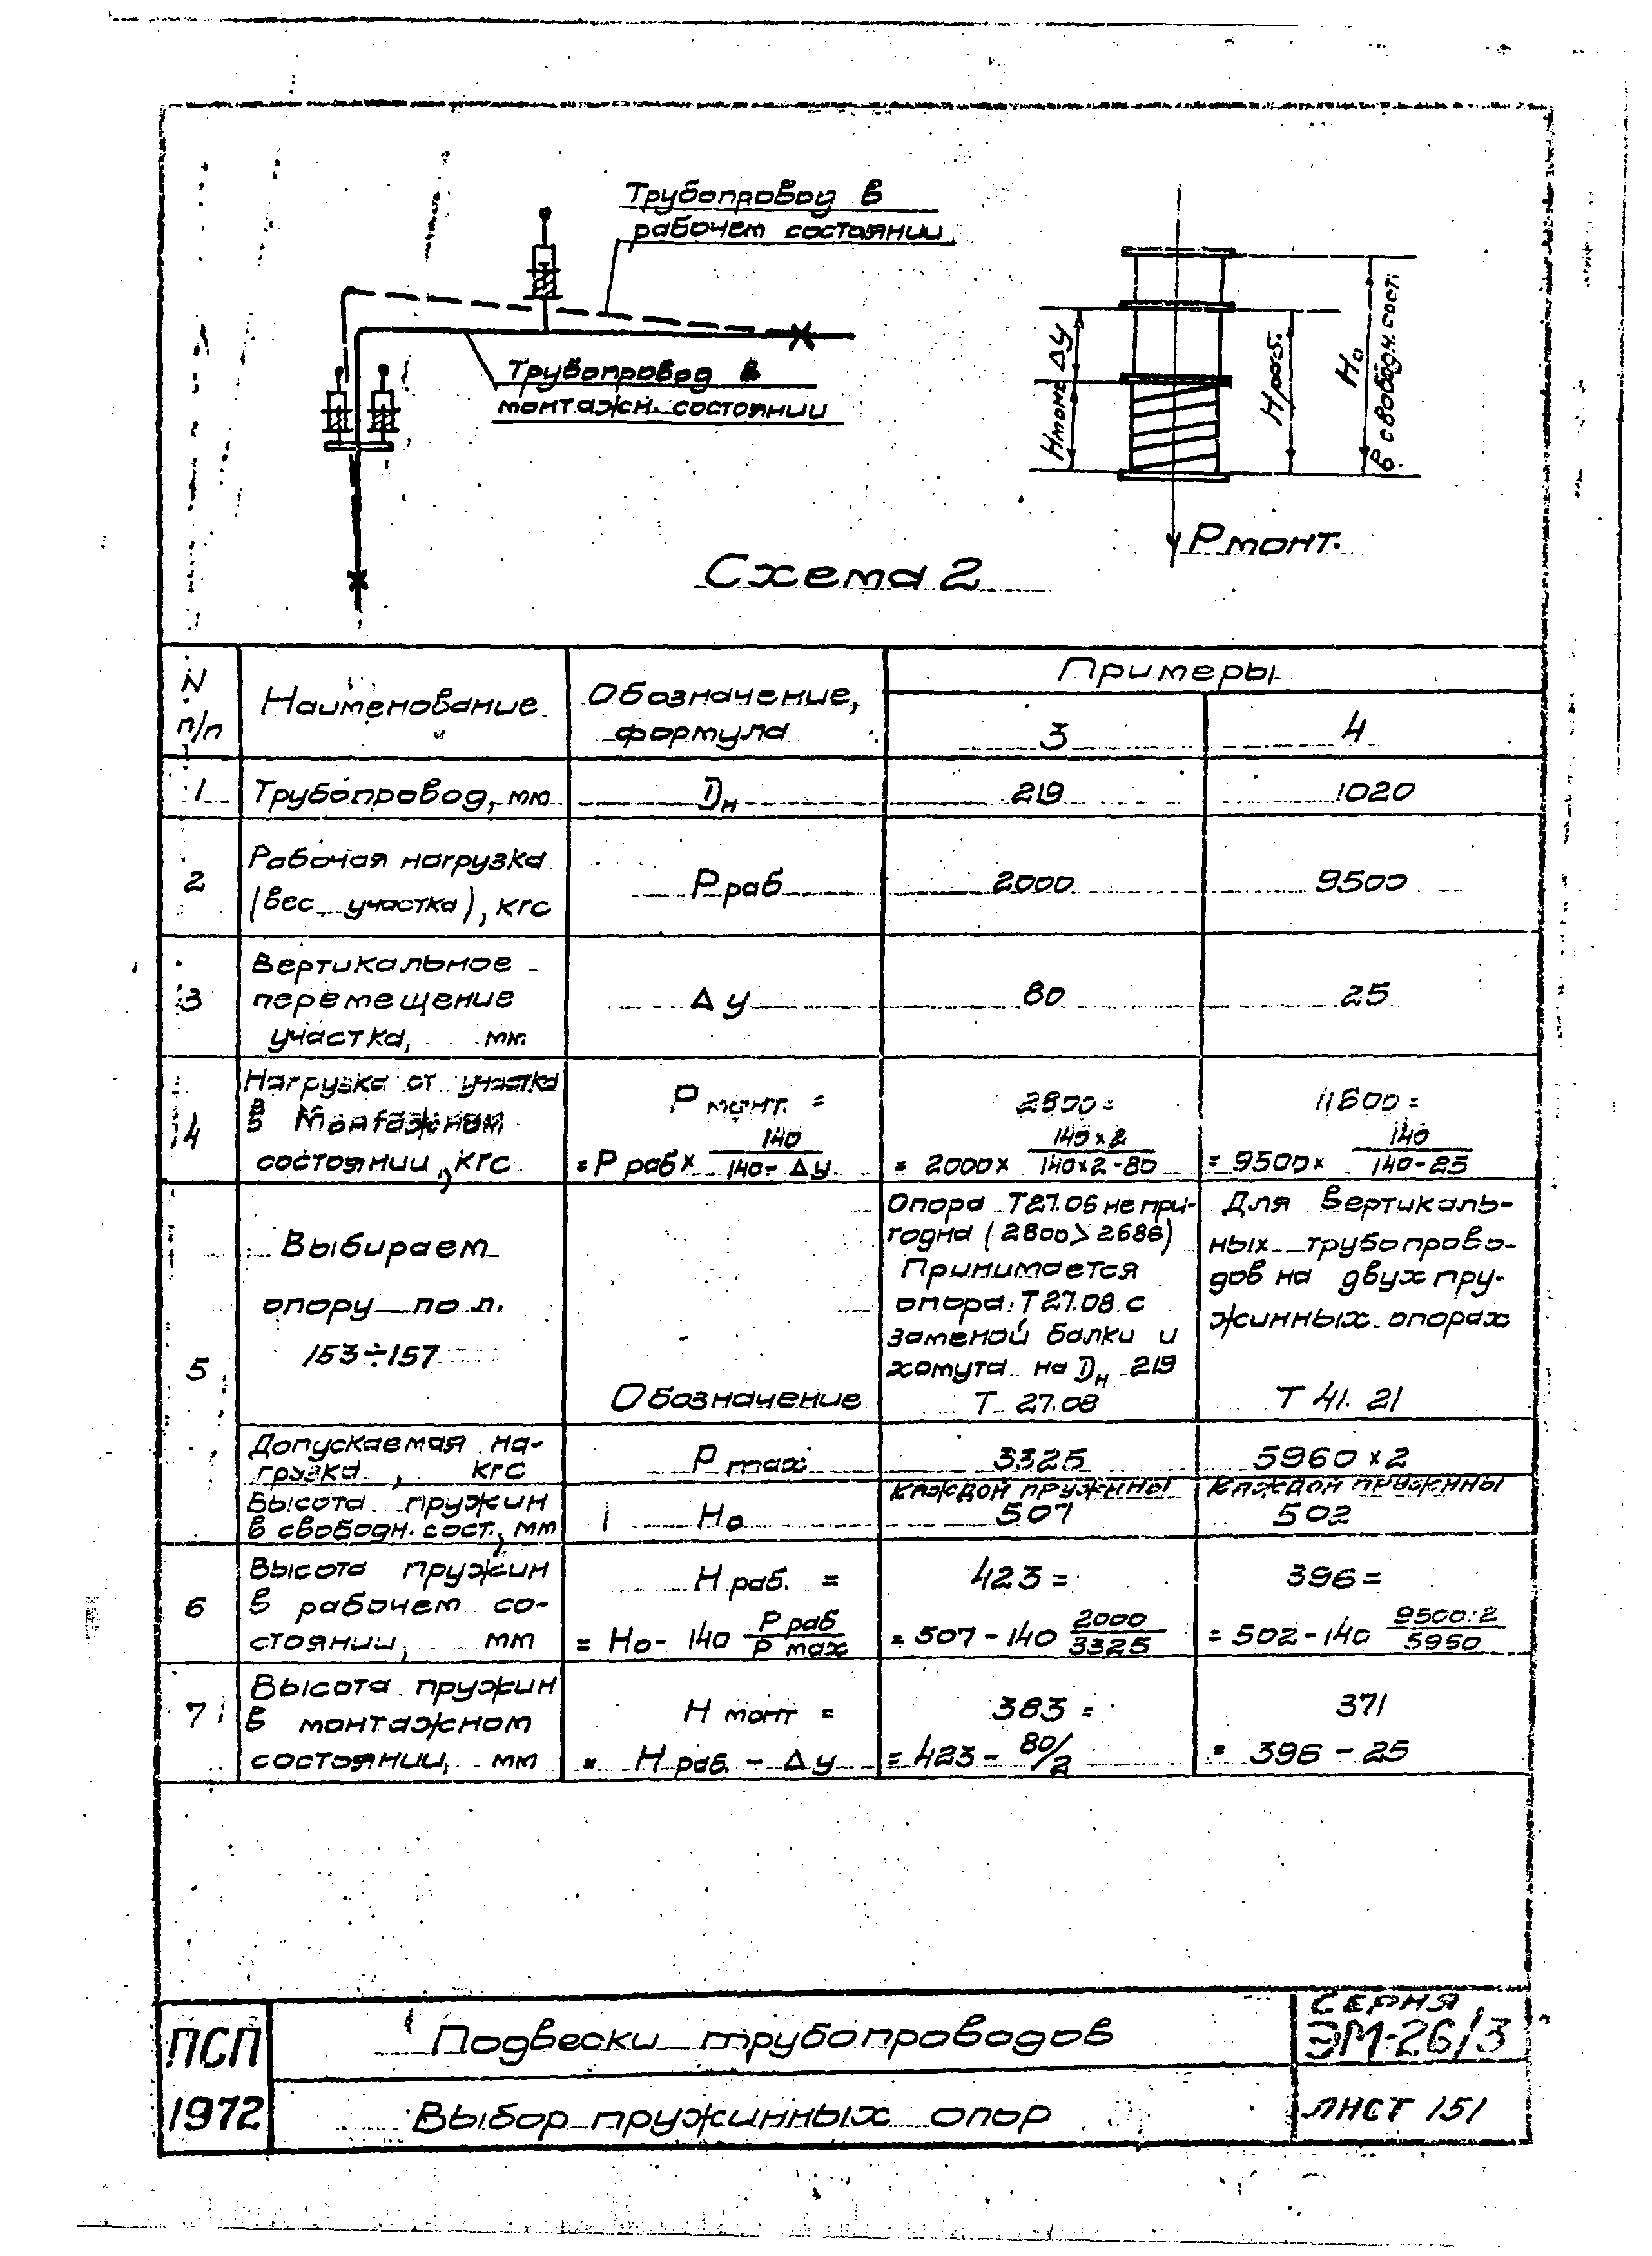 Трубопровод в
рабочем состоянии
Трубопровод в
монтажн. состоянии
Δу
Нмонт
Нраб.
Но
в свободн. сост.
Рмонт.
Схема 2
N
п/п
Наименование
Обозначение,
формула
Примеры
3
4
1
Трубопровод, мм
Dн
219
1020
2
Рабочая нагрузка
(вес участка), кгс
Р раб
2000
9500
3
Вертикальное
перемещение
участка, мм
Δ у
80
25
4
Нагрузка от участка
в монтажном
состоянии, кгс
Р монт. =
= Р раб × 140 / 140 - Δу
2800 =
= 2000 × 140×2 / 140×2-80
11600 =
= 9500 × 140 / 140-25
5
Выбираем
опору по л.
153÷157
Обозначение
Опора Т27.06 не при-
годна (2800>2686)
Принимается
опора Т27.08 с
заменой балки и
хомута на Dн 219
Т 27.08
Для вертикаль-
ных трубопрово-
дов на двух пру-
жинных опорах
Т 41. 21
Допускаемая на-
грузка, кгс
Р max
3325
5960 × 2
Высота пружин
в свободн. сост., мм
Но
каждой пружины
507
каждой пружины
502
6
Высота пружин
в рабочем со-
стоянии, мм
Н раб. =
= Но - 140 Р раб / Р max
423 =
= 507 - 140 2000 / 3325
396 =
= 502 - 140 9500:2 / 5950
7
Высота пружин
в монтажном
состоянии, мм
Н монт =
= Н раб. - Δ у
383 =
= 423 - 80/2
371
= 396 - 25
ПСП
1972
Подвески трубопроводов
Выбор пружинных опор
СЕРИЯ
ЭМ-26/3
ЛИСТ 151